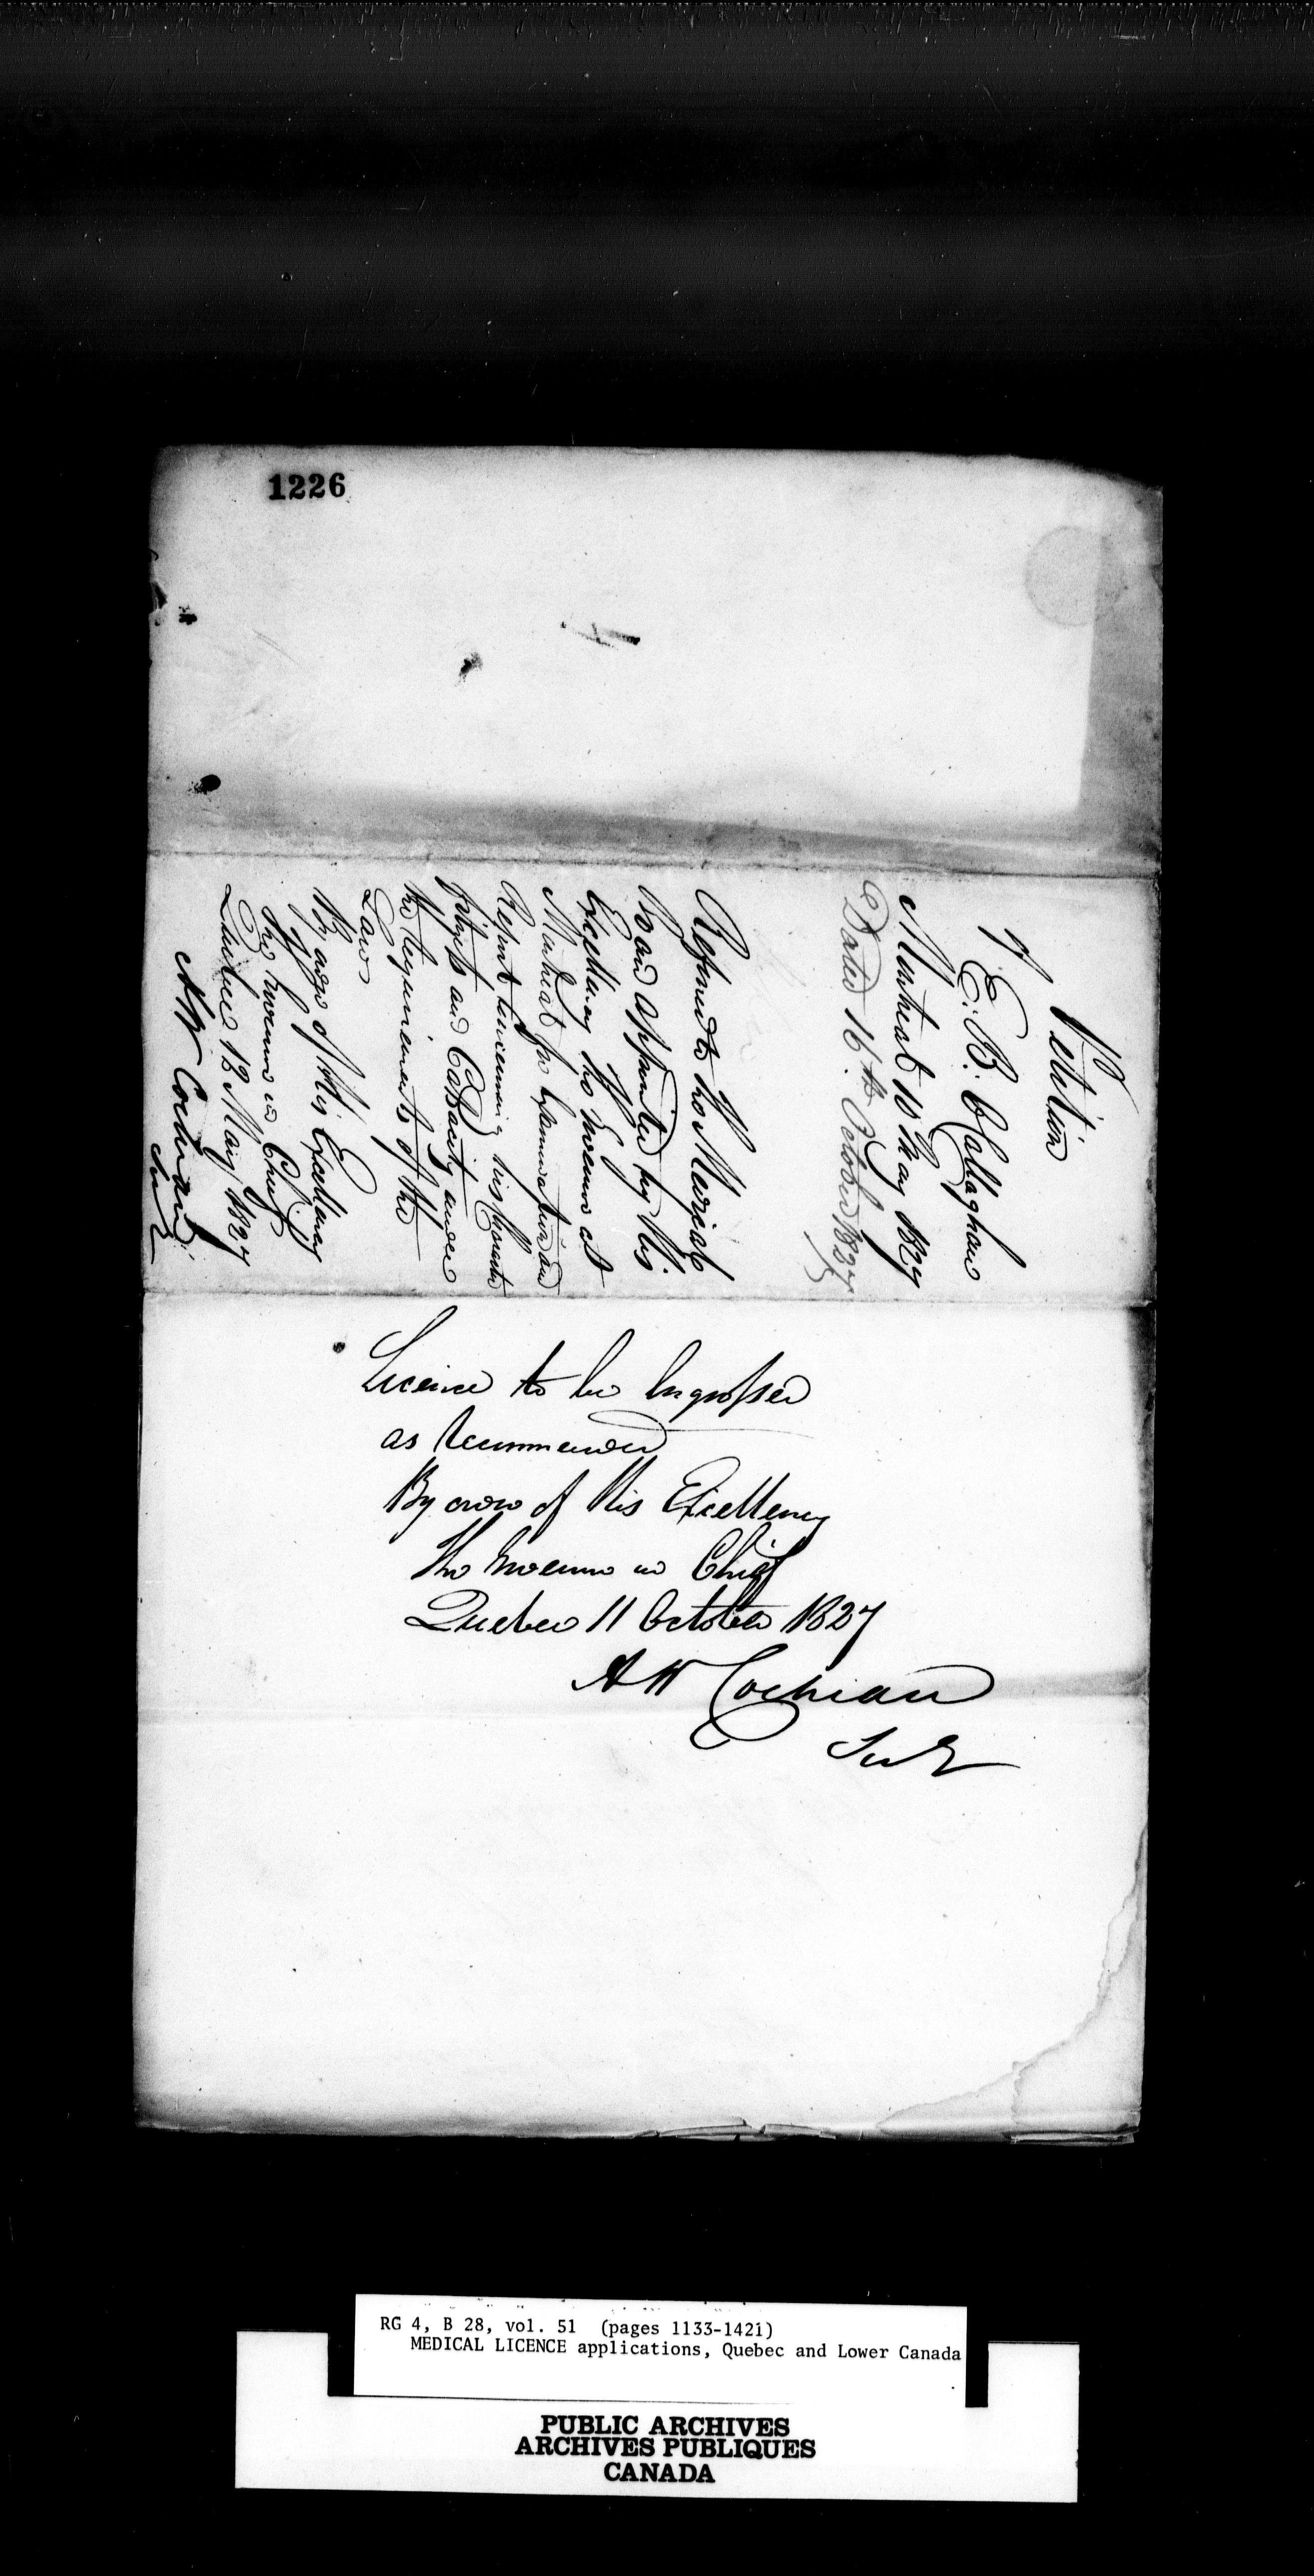 1226
Petition
of
E. B. Callaghan
Montreal 10 May 1827
Dated 16th October 1827
Referred to the Medical
Board appointed by His
Excellency the Governor at
Montreal for Examination and
Report concerning his Character
fitness and Capacity under
the requirements of the
Law
By order of His Excellency
The Governor in Chief
Quebec 12 May 1827
AW Cochran
Secy
Licence to be Engrossed
as recommended
By order of His Excellency
The Governor in Chief
Quebec 11 October 1827
AW Cochran
Secy
RG 4, B 28, vol. 51 (pages 1133-1421)
MEDICAL LICENCE applications, Quebec and Lower Canada
PUBLIC ARCHIVES
ARCHIVES PUBLIQUES
CANADA